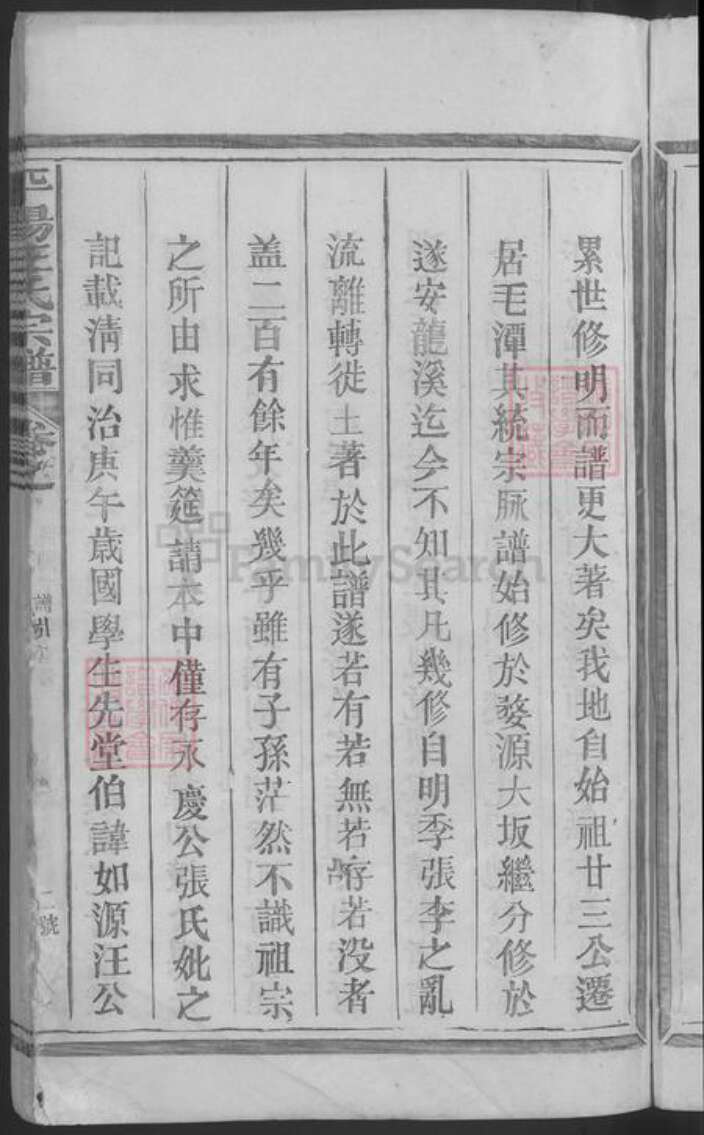 累世修明而譜更大著矣我地自始祖廿三公遷
居毛潭其統宗脉譜始修於婺源大坂繼分修於
遂安龍溪迄今不知其凡幾修自明季張李之亂
流離轉徙土著於此譜遂若有若無若存若没者
盖二百有餘年矣幾乎雖有子孫茫然不識祖宗
之所由求惟羹筵請本中僅存永慶公張氏妣之
記載清同治庚午歲國學生先堂伯諱如源汪公
平陽汪氏宗譜
卷之
譜引
二號
FamilySearch